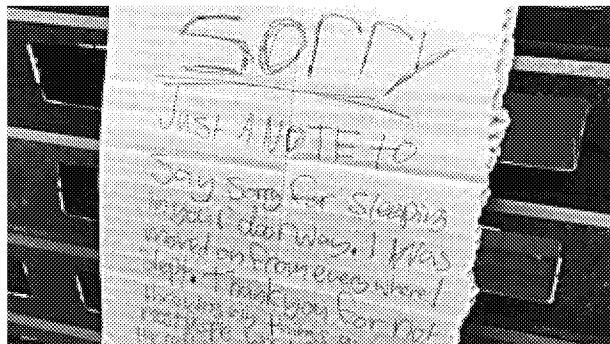 Sorry
Just A NOTE to
Say Sorry for Sleeping
in your doorway. I Was
moved on from everywhere I
thank you for not